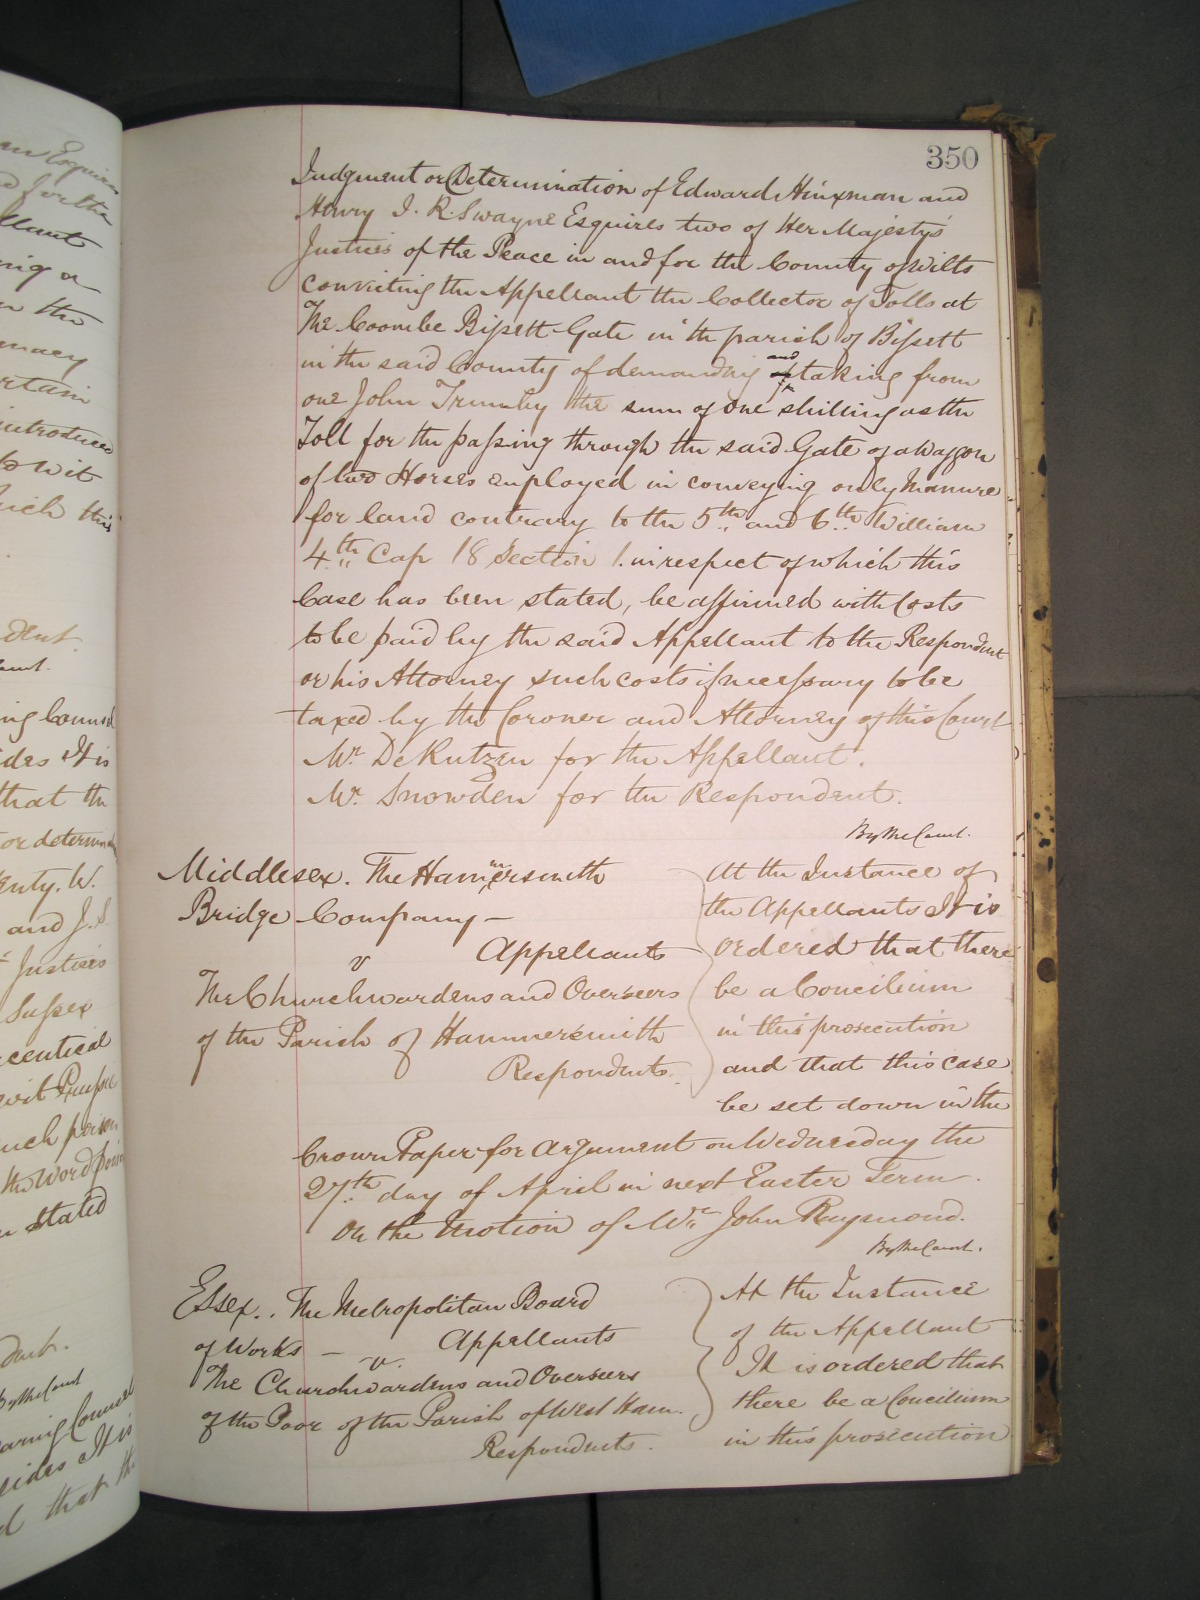 350
Judgment or Determination of Edward Hinxman and
Henry I. R. Swayne Esquires two of Her Majesty's
Justices of the Peace in and for the County of Wilts
convicting the Appellant the Collector of Tolls at
The Coombe Bissett Gate in the parish of Bissett
in the said County of demanding and taking from
one John Trumby the sum of one shilling as the
Toll for the passing through the said Gate of a Waggon
of two Horses employed in conveying only Manure
for land contrary to the 5th and 6th William
4th Cap 18 Section 1. in respect of which this
Case has been stated, be affirmed with Costs
to be paid by the said Appellant to the Respondent
or his Attorney such costs if necessary to be
taxed by the Coroner and Attorney of this Court
Mr. De Rutzen for the Appellant.
Mr. Snowden for the Respondent.
By the Court.
Middlesex. The Hammersmith
Bridge Company —
Appellants
v
The Churchwardens and Overseers
of the Parish of Hammersmith
Respondents.
At the Instance of
the Appellants It is
ordered that there
be a Concilium
in this prosecution
and that this case
be set down in the
Crown Paper for argument on Wednesday the
27th day of April in next Easter Term.
On the Motion of Mr. John Raymond.
By the Court.
Essex. The Metropolitan Board
of Works — Appellants
v.
The Churchwardens and Overseers
of the Poor of the Parish of West Ham.
Respondents.
At the Instance
of the Appellant
It is ordered that
there be a Concilium
in this prosecution